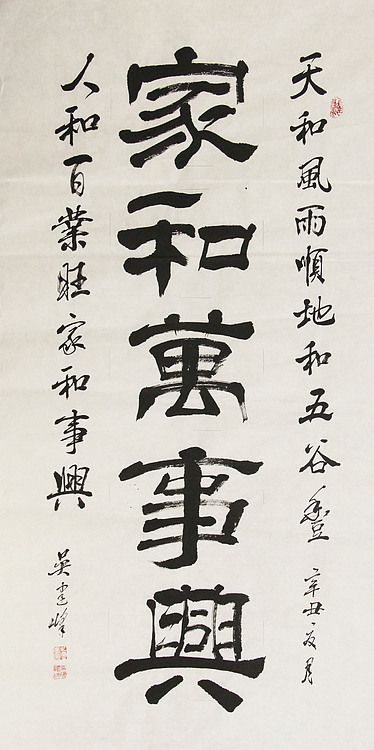 天和風雨順地和五谷豐 辛丑夏月
家和萬事興
人和百業旺家和事興
吴建峰